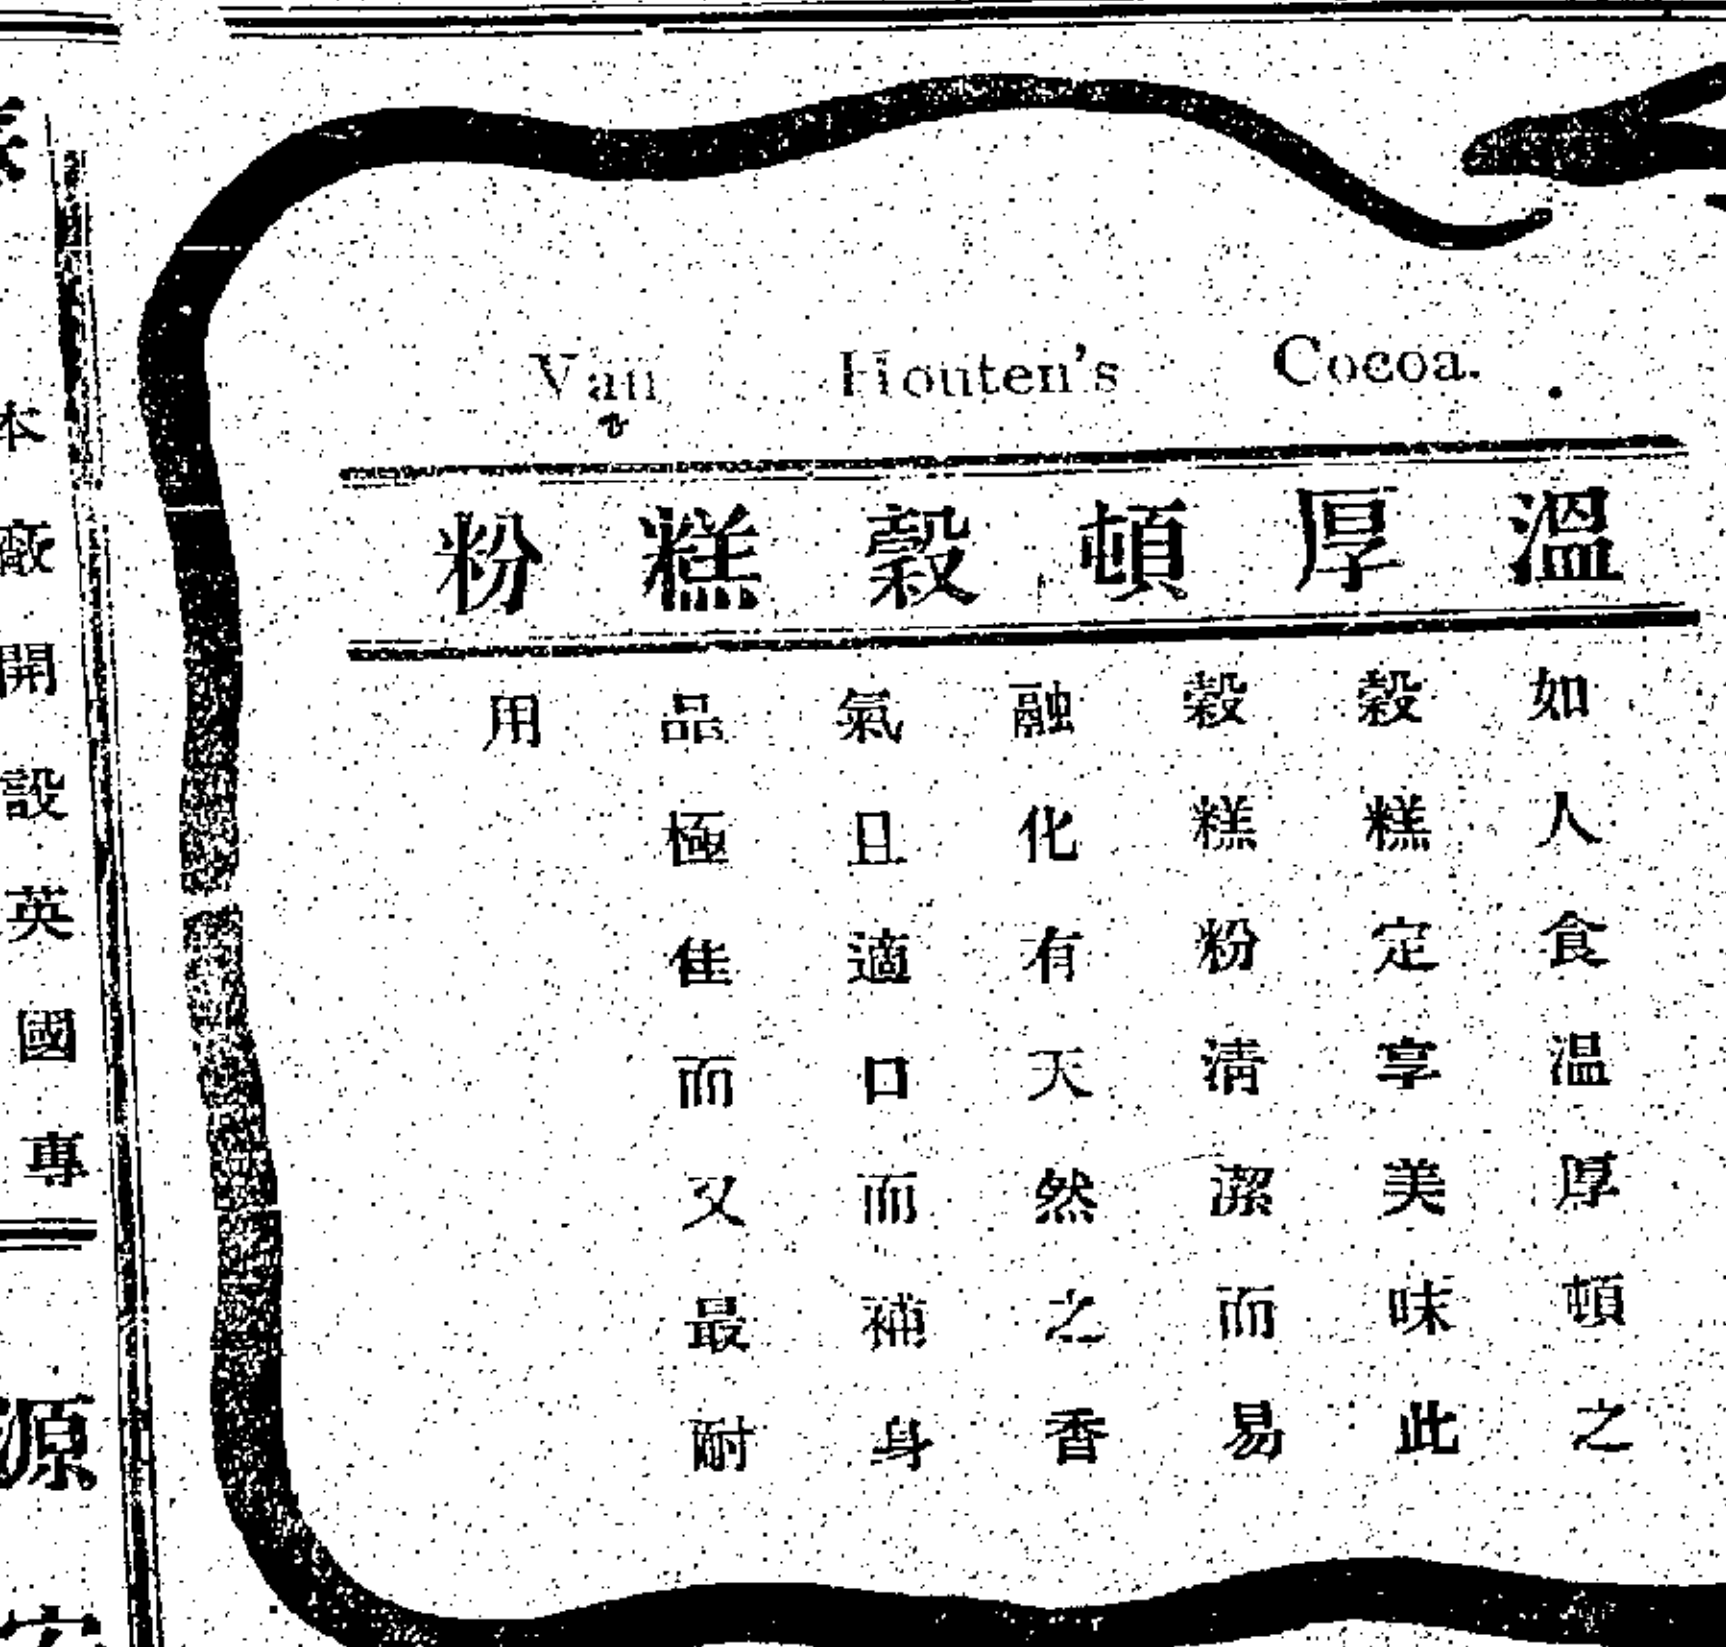 Van Houten's Cocoa.
溫厚頓穀糕粉
如人食温厚頓之
穀糕定享美味此
穀糕粉清潔而易
融化有天然之香
氣且適口而補身
品極佳而又最耐
用
本廠開設英國專
源